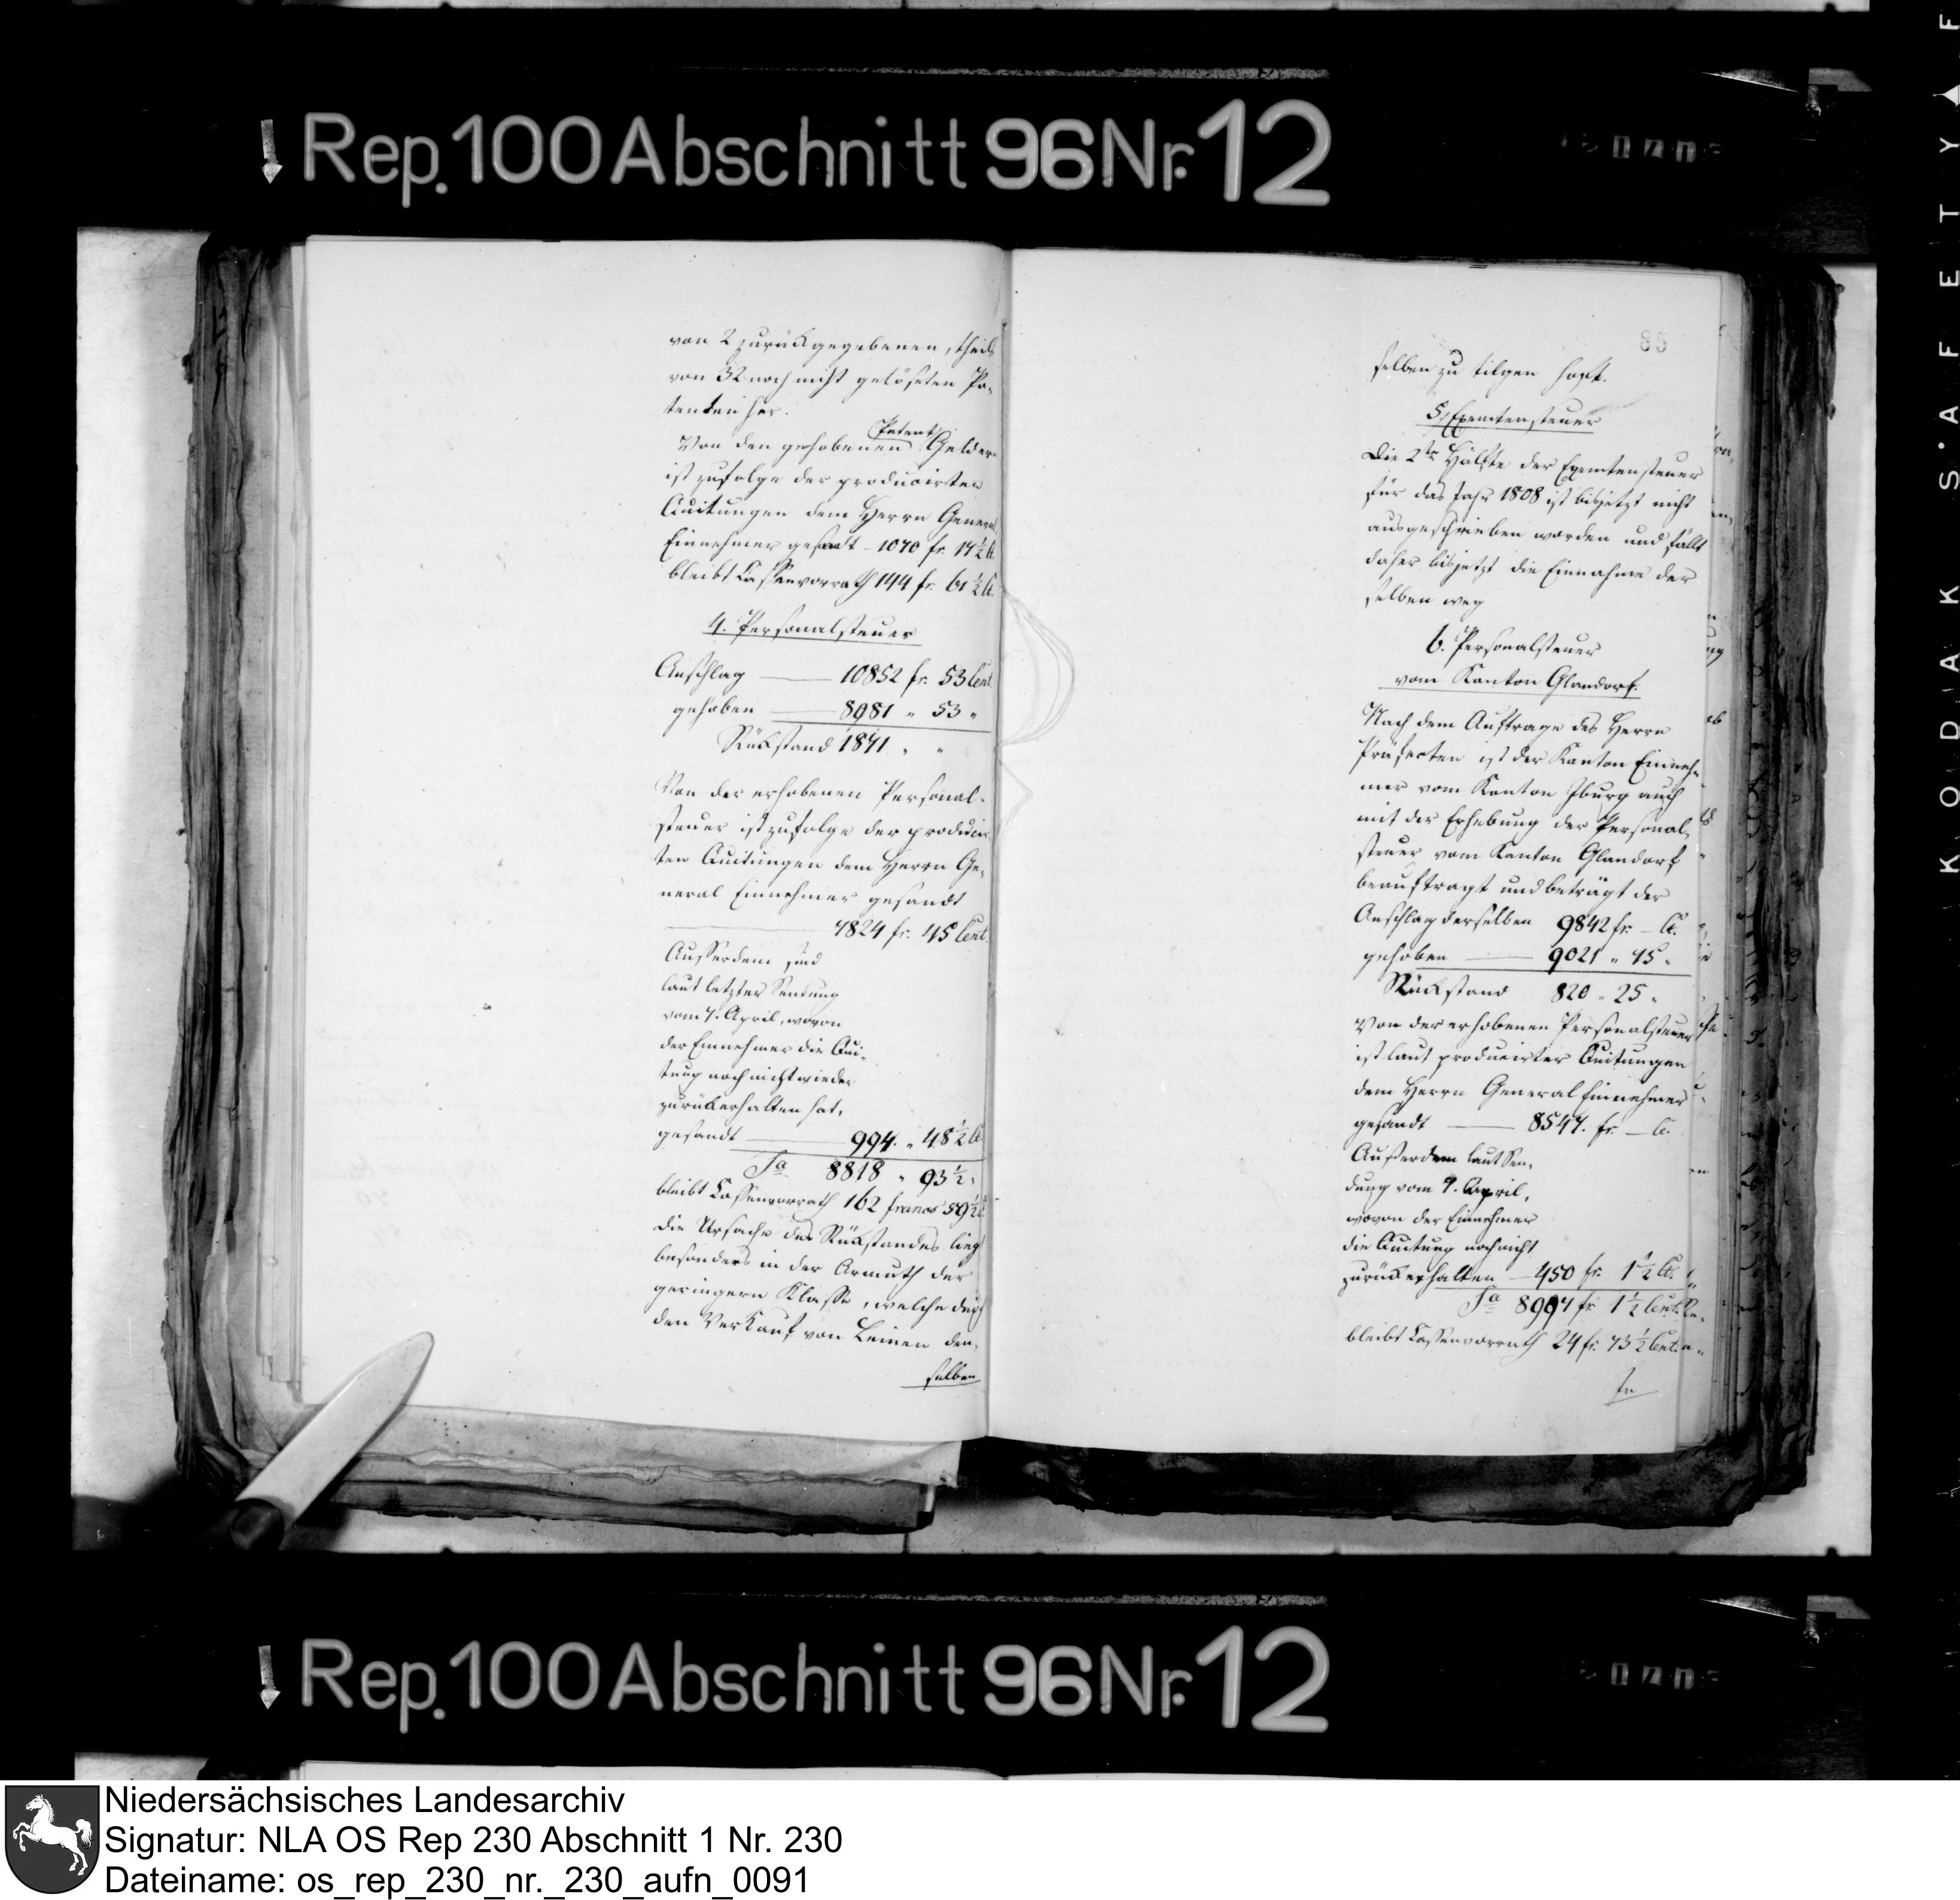 Rep. 100 Abschnitt 96 Nr. 12
von 2 zurückgegebenen, theils
von 32 noch nicht gelöseten Pa-
tenten her.
Von den gehobenen Patent Geldern
ist zufolge der producirten
Quitungen dem Herrn General
Einnehmer gesandt - 1070 fr. 17½ C.
bleibt Cassenvorrath 144 fr. 61½ C.
4. Personalsteuer
Anschlag — 10852 fr. 53 Cent.
gehoben — 8981 " 53 "
Rückstand 1871 " "
Von der erhobenen Personal-
steuer ist zufolge der producir-
ten Quitungen dem Herrn Ge-
neral Einnehmer gesandt
— 7824 fr. 45 Cent.
Ausserdem sind
laut letzter Sendung
vom 7. April, wovon
der Einnehmer die Qui-
tung noch nicht wieder
zurückerhalten hat,
gesandt — 994 " 48½ C.
Sa 8818 " 93½ "
bleibt Cassenvorrath 162 francs 59½ C.
Die Ursache des Rückstandes liegt
besonders in der Armuth der
geringern Klasse, welche durch
den Verkauf von Leinen den-
selben
85
selben zu tilgen hofft.
5. Exemtensteuer
Die 2te Hälfte der Exemtensteuer
für das Jahr 1808 ist bisjetzt nicht
ausgeschrieben worden und fällt
daher bisjetzt die Einnahme der
selben weg
6. Personalsteuer
vom Kanton Glandorf.
Nach dem Auftrage des Herrn
Präfecten ist der Kanton Einneh-
mer vom Kanton Iburg auch
mit der Erhebung der Personal-
steuer vom Kanton Glandorf
beauftragt und beträgt der
Anschlag derselben 9842 fr. — C.
gehoben — 9021 " 75 "
Rückstand 820 " 25 "
Von der erhobenen Personalsteuer
ist laut producirter Quitungen
dem Herrn General Einnehmer
gesandt — 8547 fr. — C.
Außerdem laut Sen-
dung vom 7. April,
wovon der Einnehmer
die Quitung noch nicht
zurückerhalten — 450 fr. 1½ C.
Sa 8997 fr. 1½ Cent.
bleibt Cassenvorrath 24 fr. 73½ Cent.
Rep. 100 Abschnitt 96 Nr. 12
KODAK SAFETY F
Niedersächsisches Landesarchiv
Signatur: NLA OS Rep 230 Abschnitt 1 Nr. 230
Dateiname: os_rep_230_nr._230_aufn_0091